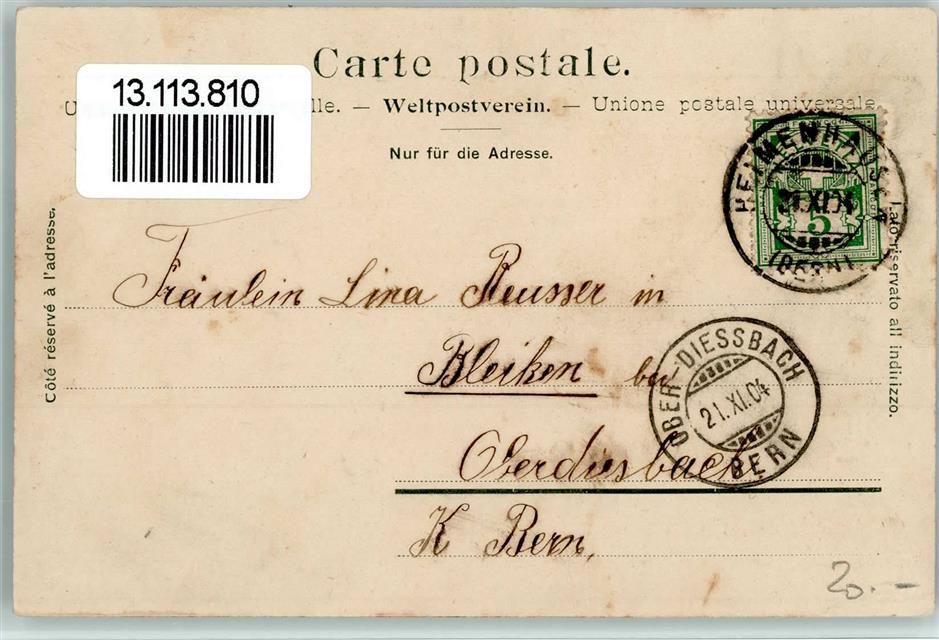 Carte postale.
13.113.810
U lle. — Weltpostverein. — Unione postale universale.
Nur für die Adresse.
Côté réservé à l'adresse.
Lato riservato all indirizzo.
HEIMENHAUSEN
21.XI.04
5
(BERN)
Fräulein Lina Reusser in
Bleiken bei
Oberdiesbach
K Bern,
OBER-DIESSBACH
21.XI.04
BERN
20.-